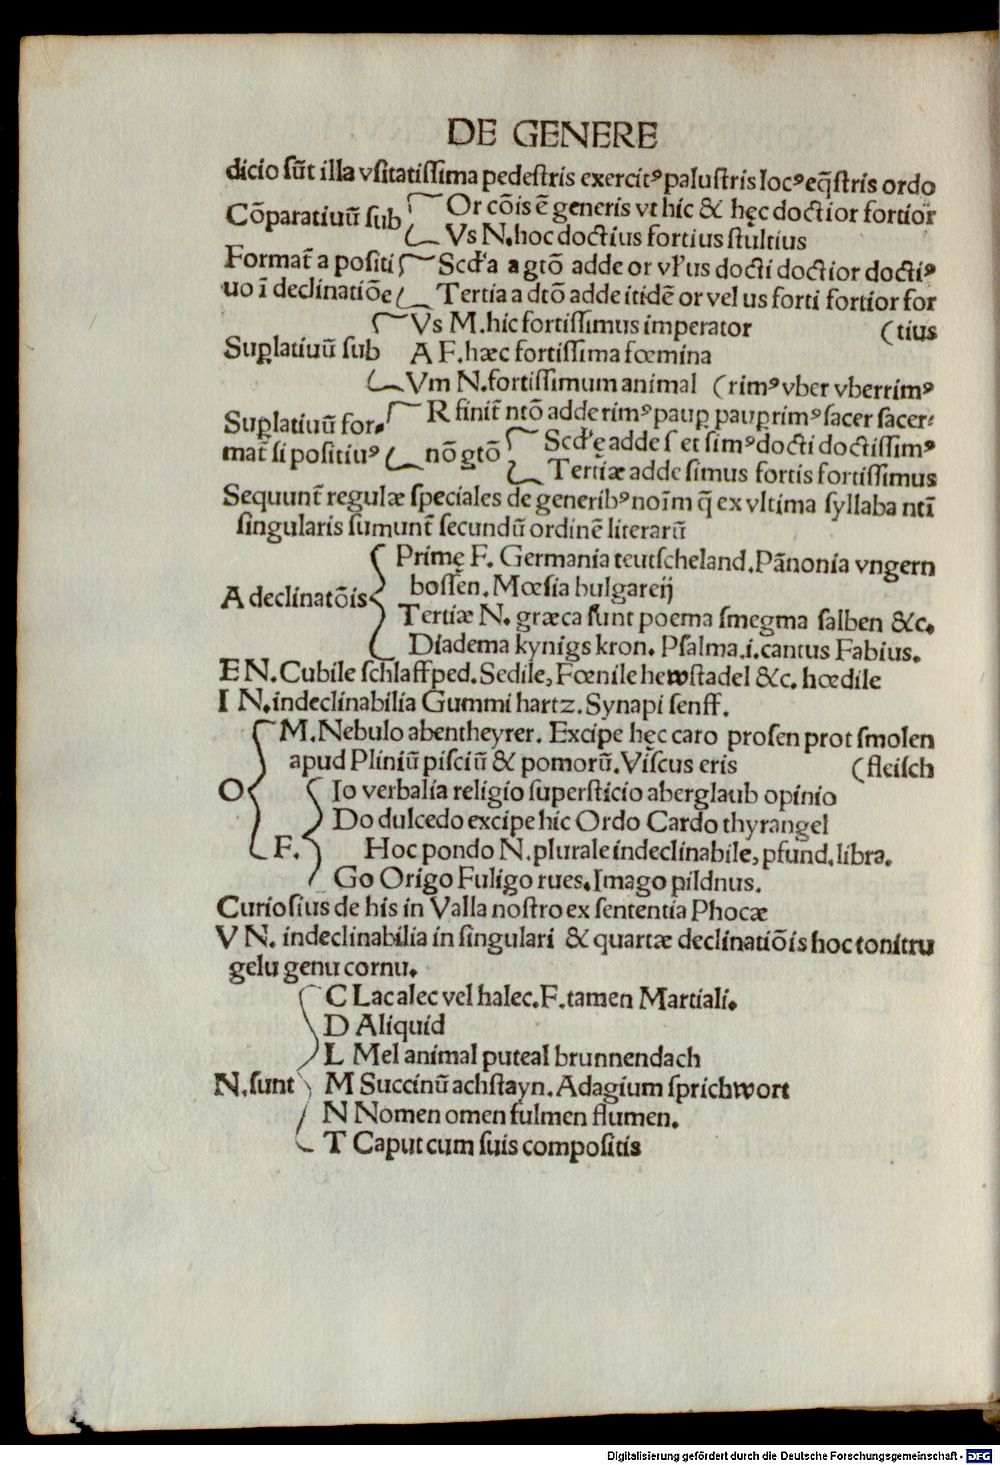 DE GENERE
dicio sūt illa vsitatissima pedestris exercitꝰ palustris locꝰ eq̄stris ordo
Cōparatiuū sub Or cōis ē generis vt hic & hęc doctior fortior
Vs N. hoc doctius fortius stultius
Format̄ a positi Scd'a a gtō adde or vl'us docti doctior doctiꝰ
uo ī declinatiōe Tertia a dtō adde itidē or vel us forti fortior for
Vs M. hic fortissimus imperator (tius
Suꝑlatiuū sub A F. hæc fortissima fœmina
Vm N. fortissimum animal (rimꝰ vber vberrimꝰ
Suꝑlatiuū for- R finit̄ ntō adde rimꝰ pauꝑ pauꝑrimꝰ sacer sacer-
mat̄ si positiuꝰ nō gtō Scd'ę adde s et simꝰ docti doctissimꝰ
Tertiæ adde simus fortis fortissimus
Sequunt̄ regulæ speciales de generibꝰ noīm q̄ ex vltima syllaba ntī
singularis sumunt̄ secundū ordinē literarū
Primę F. Germania teutscheland. Pānonia vngern
bossen. Mœsia bulgareij
A declinatōis Tertiæ N. græca sunt poema smegma salben &c.
Diadema kynigs kron. Psalma .i. cantus Fabius.
E N. Cubile schlaffped. Sedile, Fœnile hewstadel &c. hœdile
I N. indeclinabilia Gummi hartz. Synapi senff.
M. Nebulo abentheyrer. Excipe hęc caro prosen prot smolen
apud Pliniū pisciū & pomorū. Viscus eris (fleisch
O Io verbalia religio supersticio aberglaub opinio
Do dulcedo excipe hic Ordo Cardo thyrangel
F. Hoc pondo N. plurale indeclinabile, pfund. libra.
Go Origo Fuligo rues. Imago pildnus.
Curiosius de his in Valla nostro ex sententia Phocæ
V N. indeclinabilia in singulari & quartæ declinatiōis hoc tonitru
gelu genu cornu.
C Lac alec vel halec. F. tamen Martiali.
D Aliquid
L Mel animal puteal brunnendach
N. sunt M Succinū achstayn. Adagium sprichwort
N Nomen omen fulmen flumen.
T Caput cum suis compositis
Digitalisierung gefördert durch die Deutsche Forschungsgemeinschaft - DFG